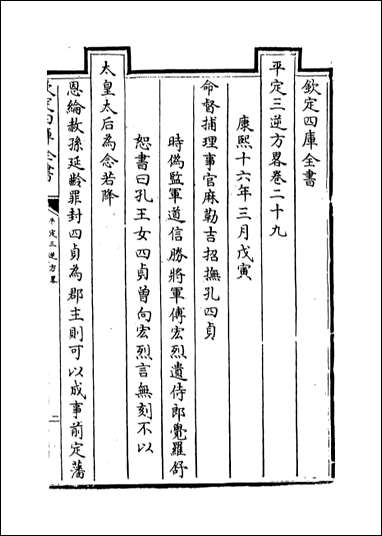 欽定四庫全書
平定三逆方畧卷二十九
康熙十六年三月戊寅
命督捕理事官麻勒吉招撫孔四貞
時偽監軍道信勝將軍傅宏烈遺侍郎覺羅舒
恕書曰孔王女四貞曽向宏烈言無刻不以
太皇太后為念若降
恩綸赦孫延齡罪封四貞為郡主則可以成事前定藩
欽定四庫全書
平定三逆方畧